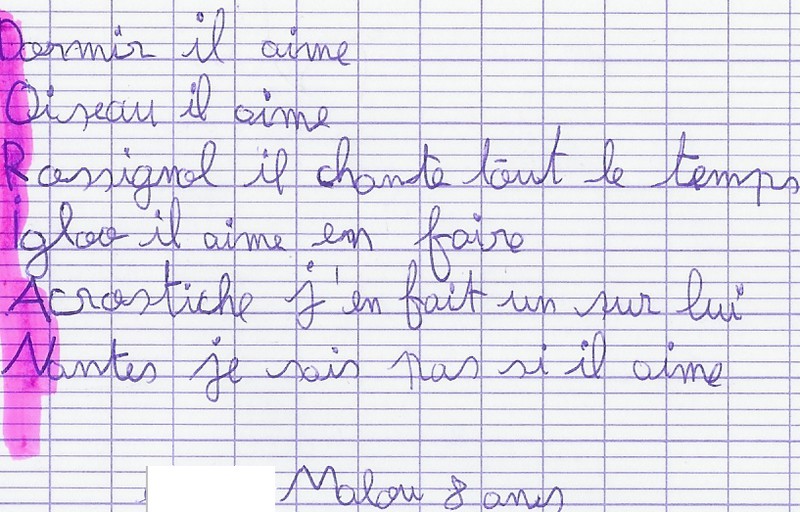 Dormir il aime
Oiseau il aime
Rossignol il chante tout le temps
igloo il aime en faire
Acrostiche j'en fait un sur lui
Nantes je sais pas si il aime
Malou 8 ans